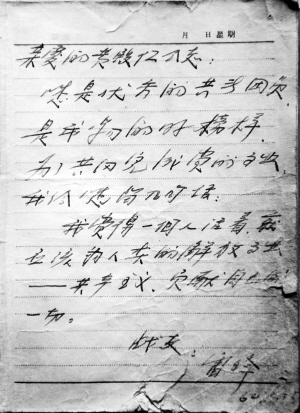 月 日 星期
亲爱的黄继仁同志:
您是优秀的共产团员,
是我学习的好榜样.
为了共同完成党的事业,
我给您写几句话:
我觉得一個人活着, 就
应该为人类的解放事业
——共产主义, 贡献自己的
一切。
战友:
雷锋